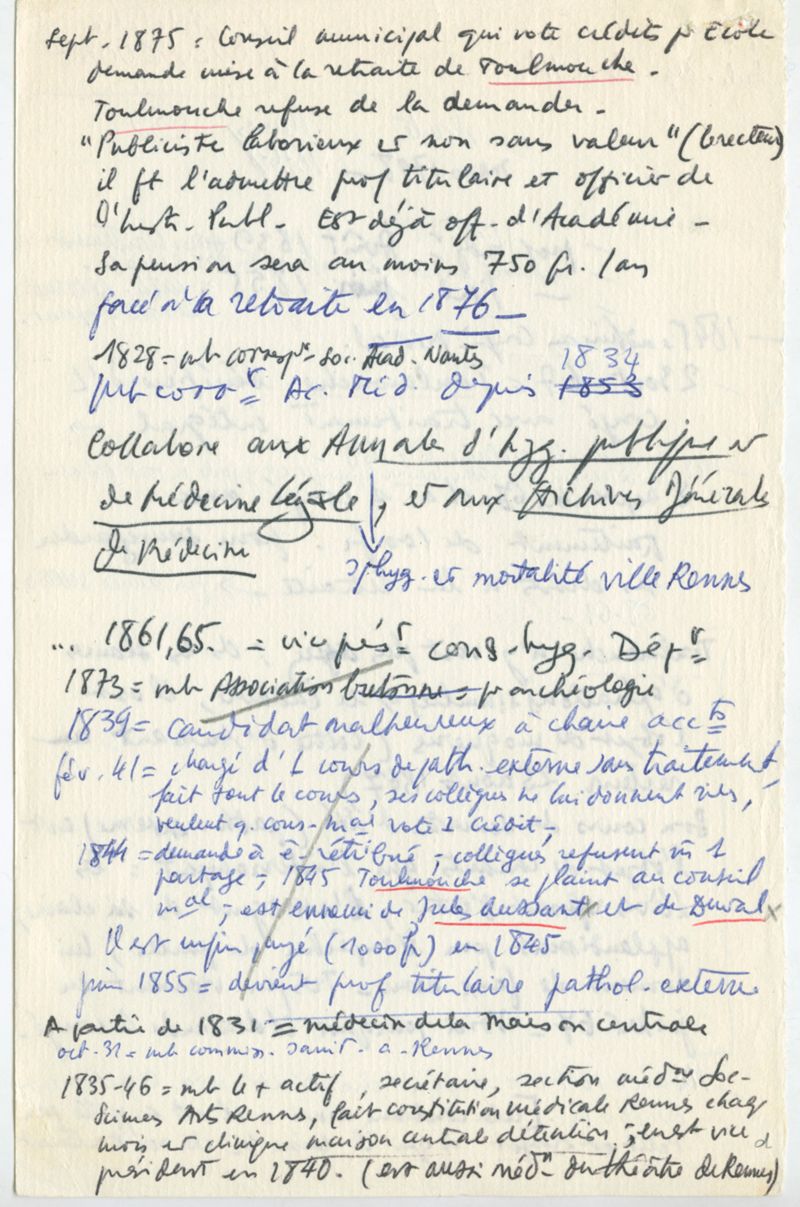 Sept. 1875 = Conseil municipal qui vote crédits pr Ecole
demande mise à la retraite de Toulmouche.
Toulmouche refuse de la demander.
"Publiciste laborieux et non sans valeur" (le recteur)
il ft l'admettre prof titulaire et officier de
l'Instr. Publ. Est déjà off. d'Académie -
Sa pension sera au moins 750 fr. /an
forcé à la retraite en 1876 -
1828 = mb correspt Soc. Acad. Nantes
mb corrt Ac. Méd. depuis 1853 1834
Collabore aux Annales d'hyg. publique et
de Médecine légale, et aux Archives Générales
de Médecine
hyg. et mortalité ville Rennes
... 1861, 65. = vice prést cons. hyg. Dépt
1873 = mb Association bretonne pr archéologie
1839 = candidat malheureux à chaire acctts
fév. 41 = chargé d'1 cours de path. externe sans traitement,
fait tout le cours, ses collègues ne lui donnent rien,
veulent q. cons. mal vote 1 crédit,
1844 = demande à ê. rétribué, collègues refusent m 1
partage, 1845 Toulmouche se plaint au conseil
mal - est ennemi de Jules Aussant x et de Duval x
Il est enfin payé (1000 fr) en 1845
juin 1855 = devient prof titulaire pathol. externe
A partir de 1831 = médecin de la Maison centrale
oct. 31 = mb commiss. sanit. à Rennes
1835-46 = mb le + actif, secrétaire, section médle Soc.
Sciences Arts Rennes, fait constitution médicale Rennes chaq
mois et clinique maison centrale détention ; en est vice
président en 1840. (est aussi médn du théâtre de Rennes)